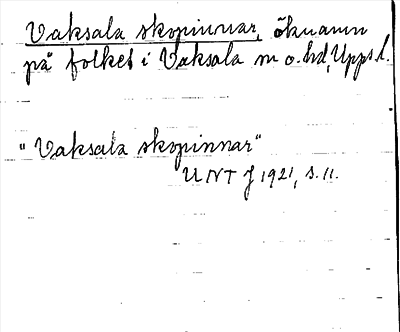 Vaksala skopinnar, öknamn
på folket i Vaksala sn o. hd, Uppsl.
"Vaksala skopinnar"
UNT J 1921, s. 11.